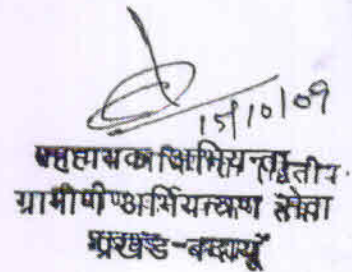 15/10/09
सहायक अभियन्ता
ग्रामीण अभियन्त्रण सेवा
प्रखंड-बदायूँ